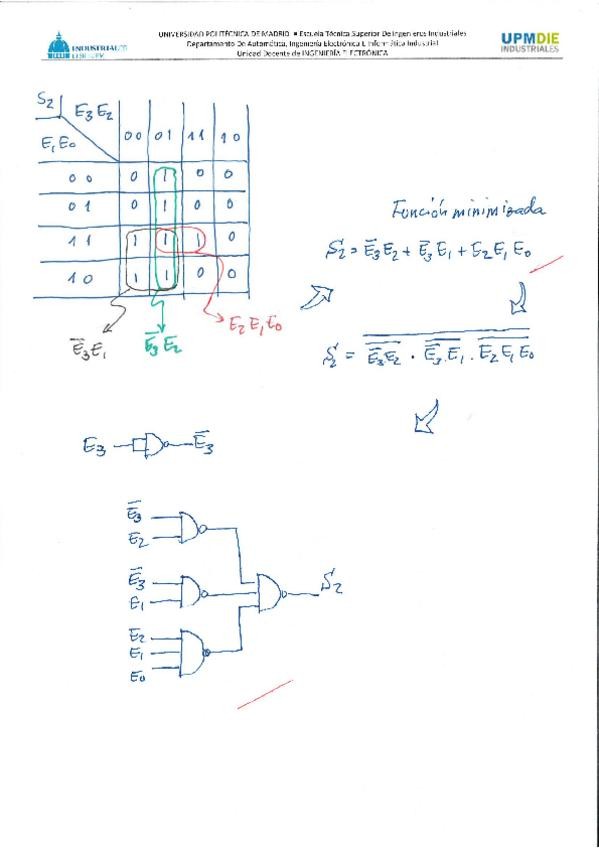 UNIVERSIDAD POLITÉCNICA DE MADRID ▪ Escuela Técnica Superior De Ingenieros Industriales
Departamento De Automática, Ingeniería Electrónica E Informática Industrial
Unidad Docente de INGENIERÍA ELECTRÓNICA
INDUSTRIALES
UPMDIE
INDUSTRIALES
S₂ E₃E₂
E₁E₀ 00 01 11 10
00 0 1 0 0
01 0 1 0 0
11 1 1 1 0
10 1 1 0 0
E̅₃E₁ E̅₃E₂ E₂E₁E₀
Función minimizada
S₂ = E̅₃E₂ + E̅₃E₁ + E₂E₁E₀
S₂ = \overline{\overline{\overline{E₃}E₂} · \overline{\overline{E₃}.E₁} . \overline{E₂E₁E₀}}
E₃ E̅₃
E̅₃
E₂
E̅₃
E₁
E₂
E₁
E₀
S₂